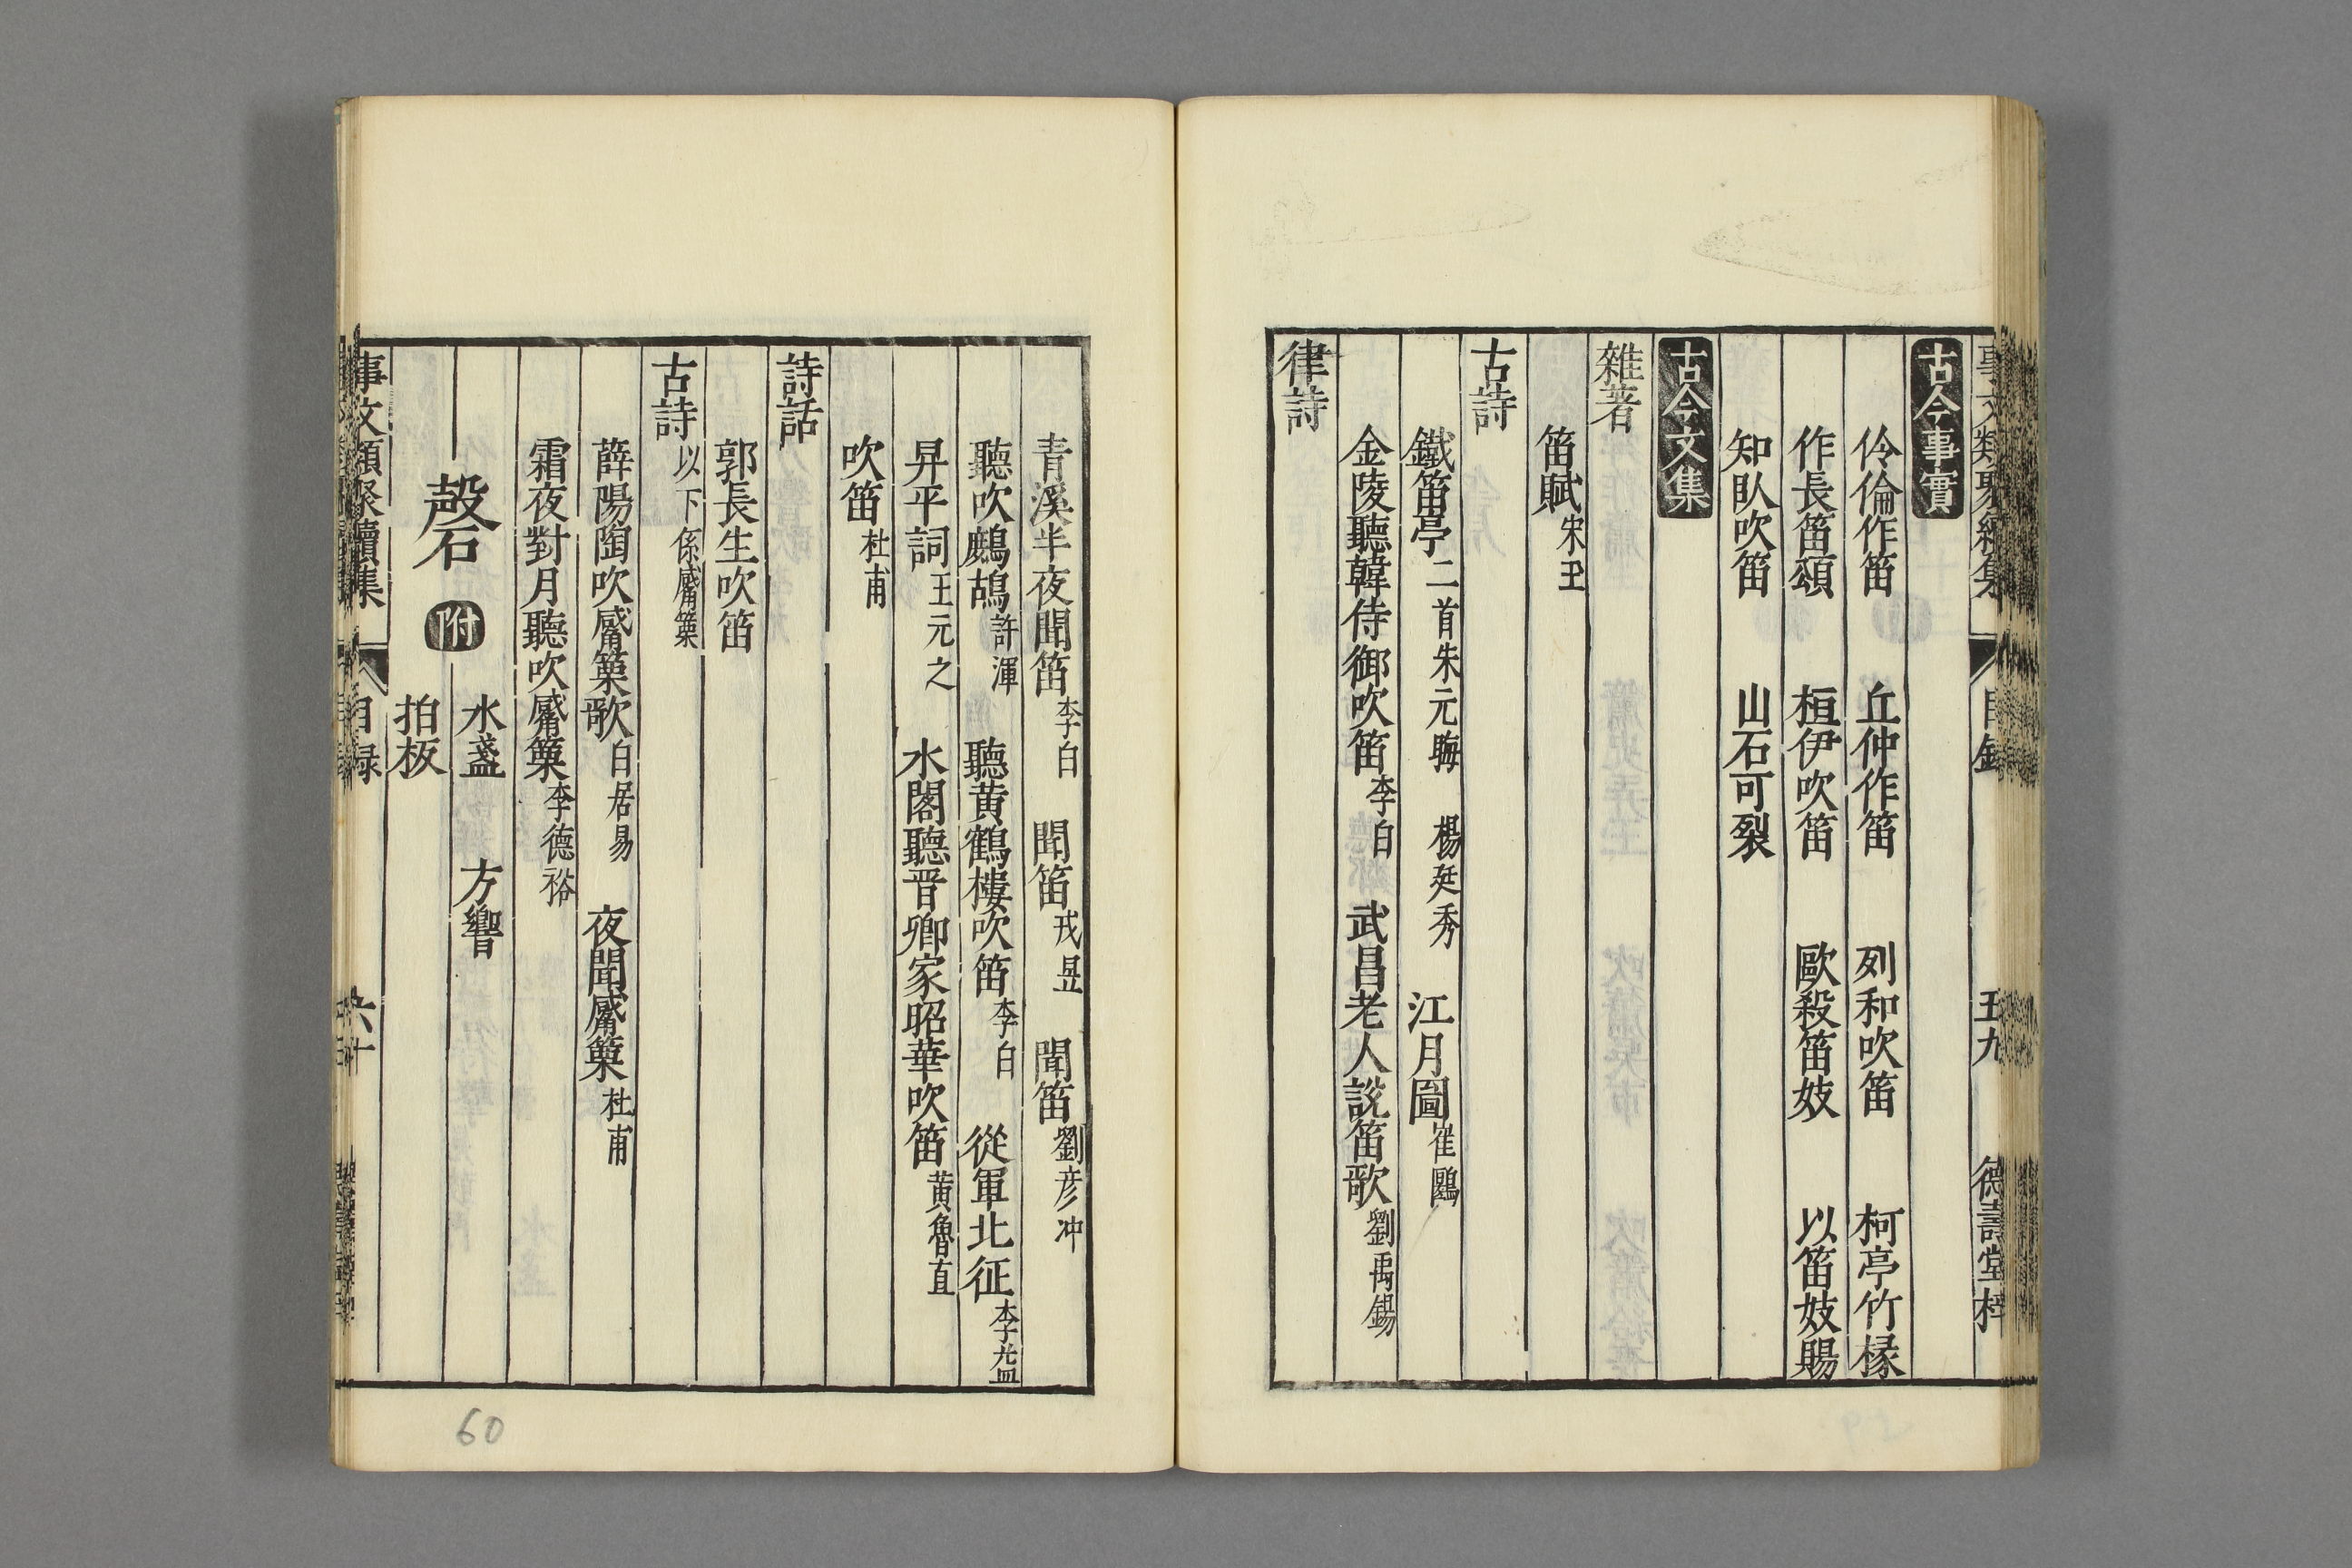 事文類聚續集 目錄 五九 德壽堂梓
古今事實
伶倫作笛 丘仲作笛 列和吹笛 柯亭竹椽
作長笛頌 桓伊吹笛 歐殺笛妓 以笛妓賜
知臥吹笛 山石可裂
古今文集
雜著
笛賦 宋玉
古詩
鐵笛亭 二首朱元晦 楊廷秀 江月圖 崔鷗
金陵聽韓侍御吹笛 李白 武昌老人説笛歌 劉禹錫
律詩
青溪半夜聞笛 李白 聞笛 戎昱 聞笛 劉彦冲
聽吹鷓鴣 許渾 聽黄鶴樓吹笛 李白 從軍北征 李益
昇平詞 王元之 水閣聽晋卿家昭華吹笛 黄魯直
吹笛 杜甫
詩話
郭長生吹笛
古詩 以下係觱篥
薛陽陶吹觱篥歌 白居易 夜聞觱篥 杜甫
霜夜對月聽吹觱篥 李德裕
磬 附 水盞 方響
拍板
事文類聚續集 目録 六十
60